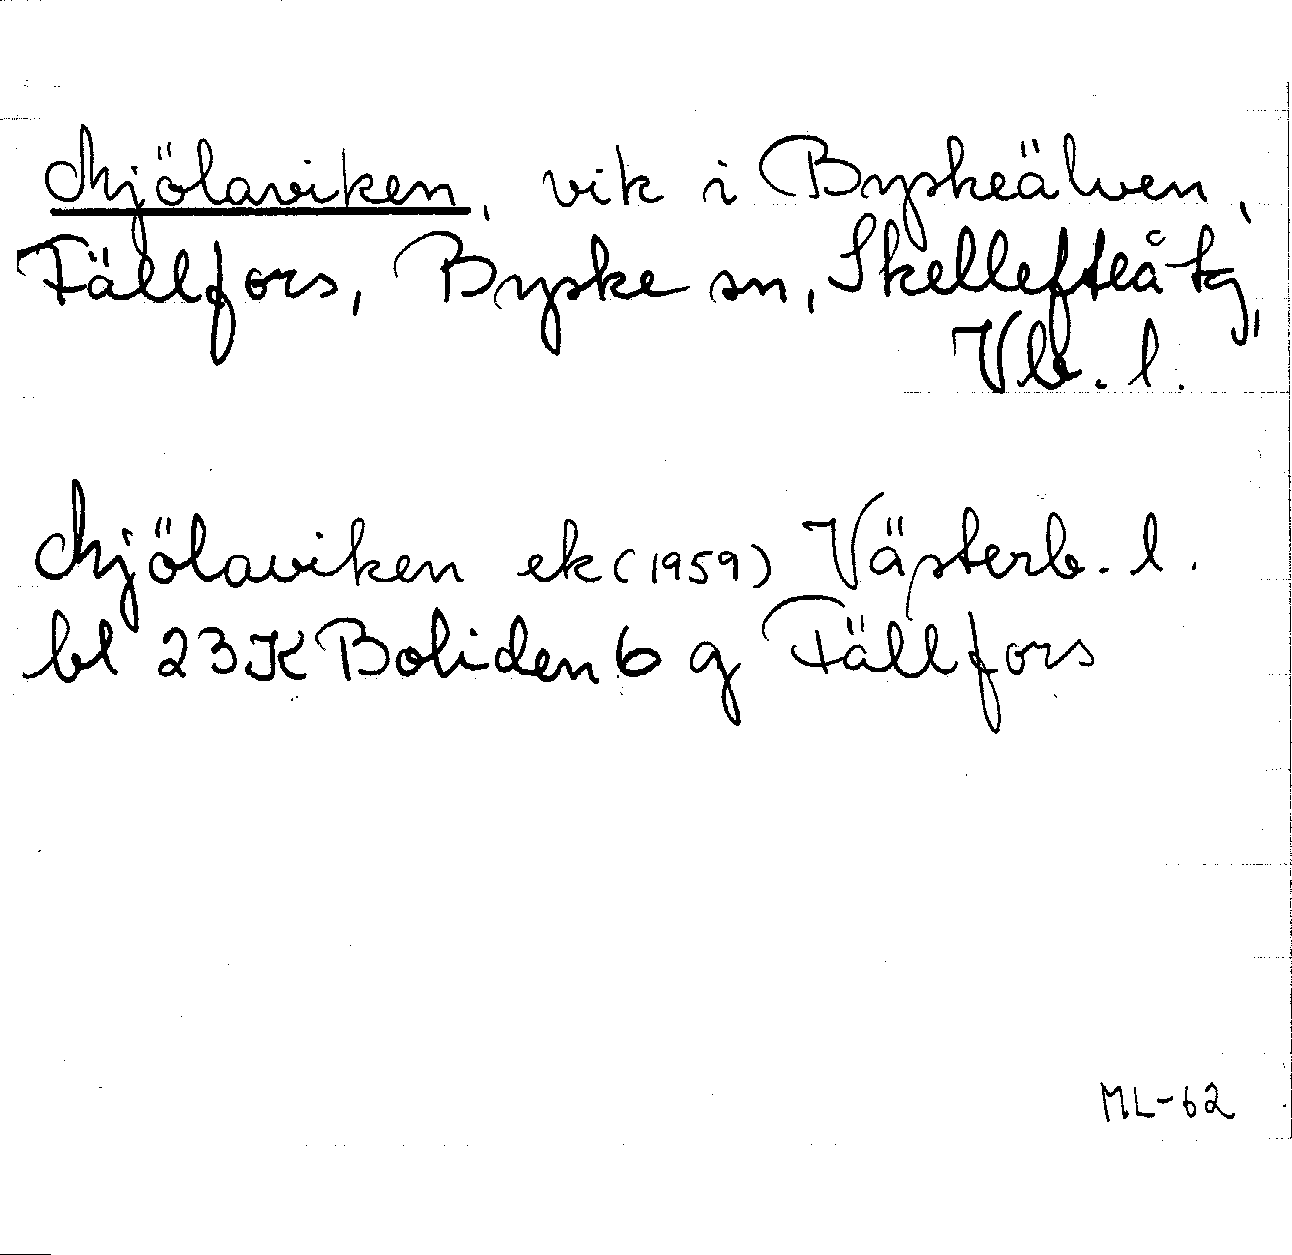 Mjölaviken, vik i Byskeälven,
Fällfors, Byske sn, Skellefteå tg,
Vb. l.
Mjölaviken ek (1959) Västerb. l.
bl 23K Boliden 6 g Fällfors
ML-62